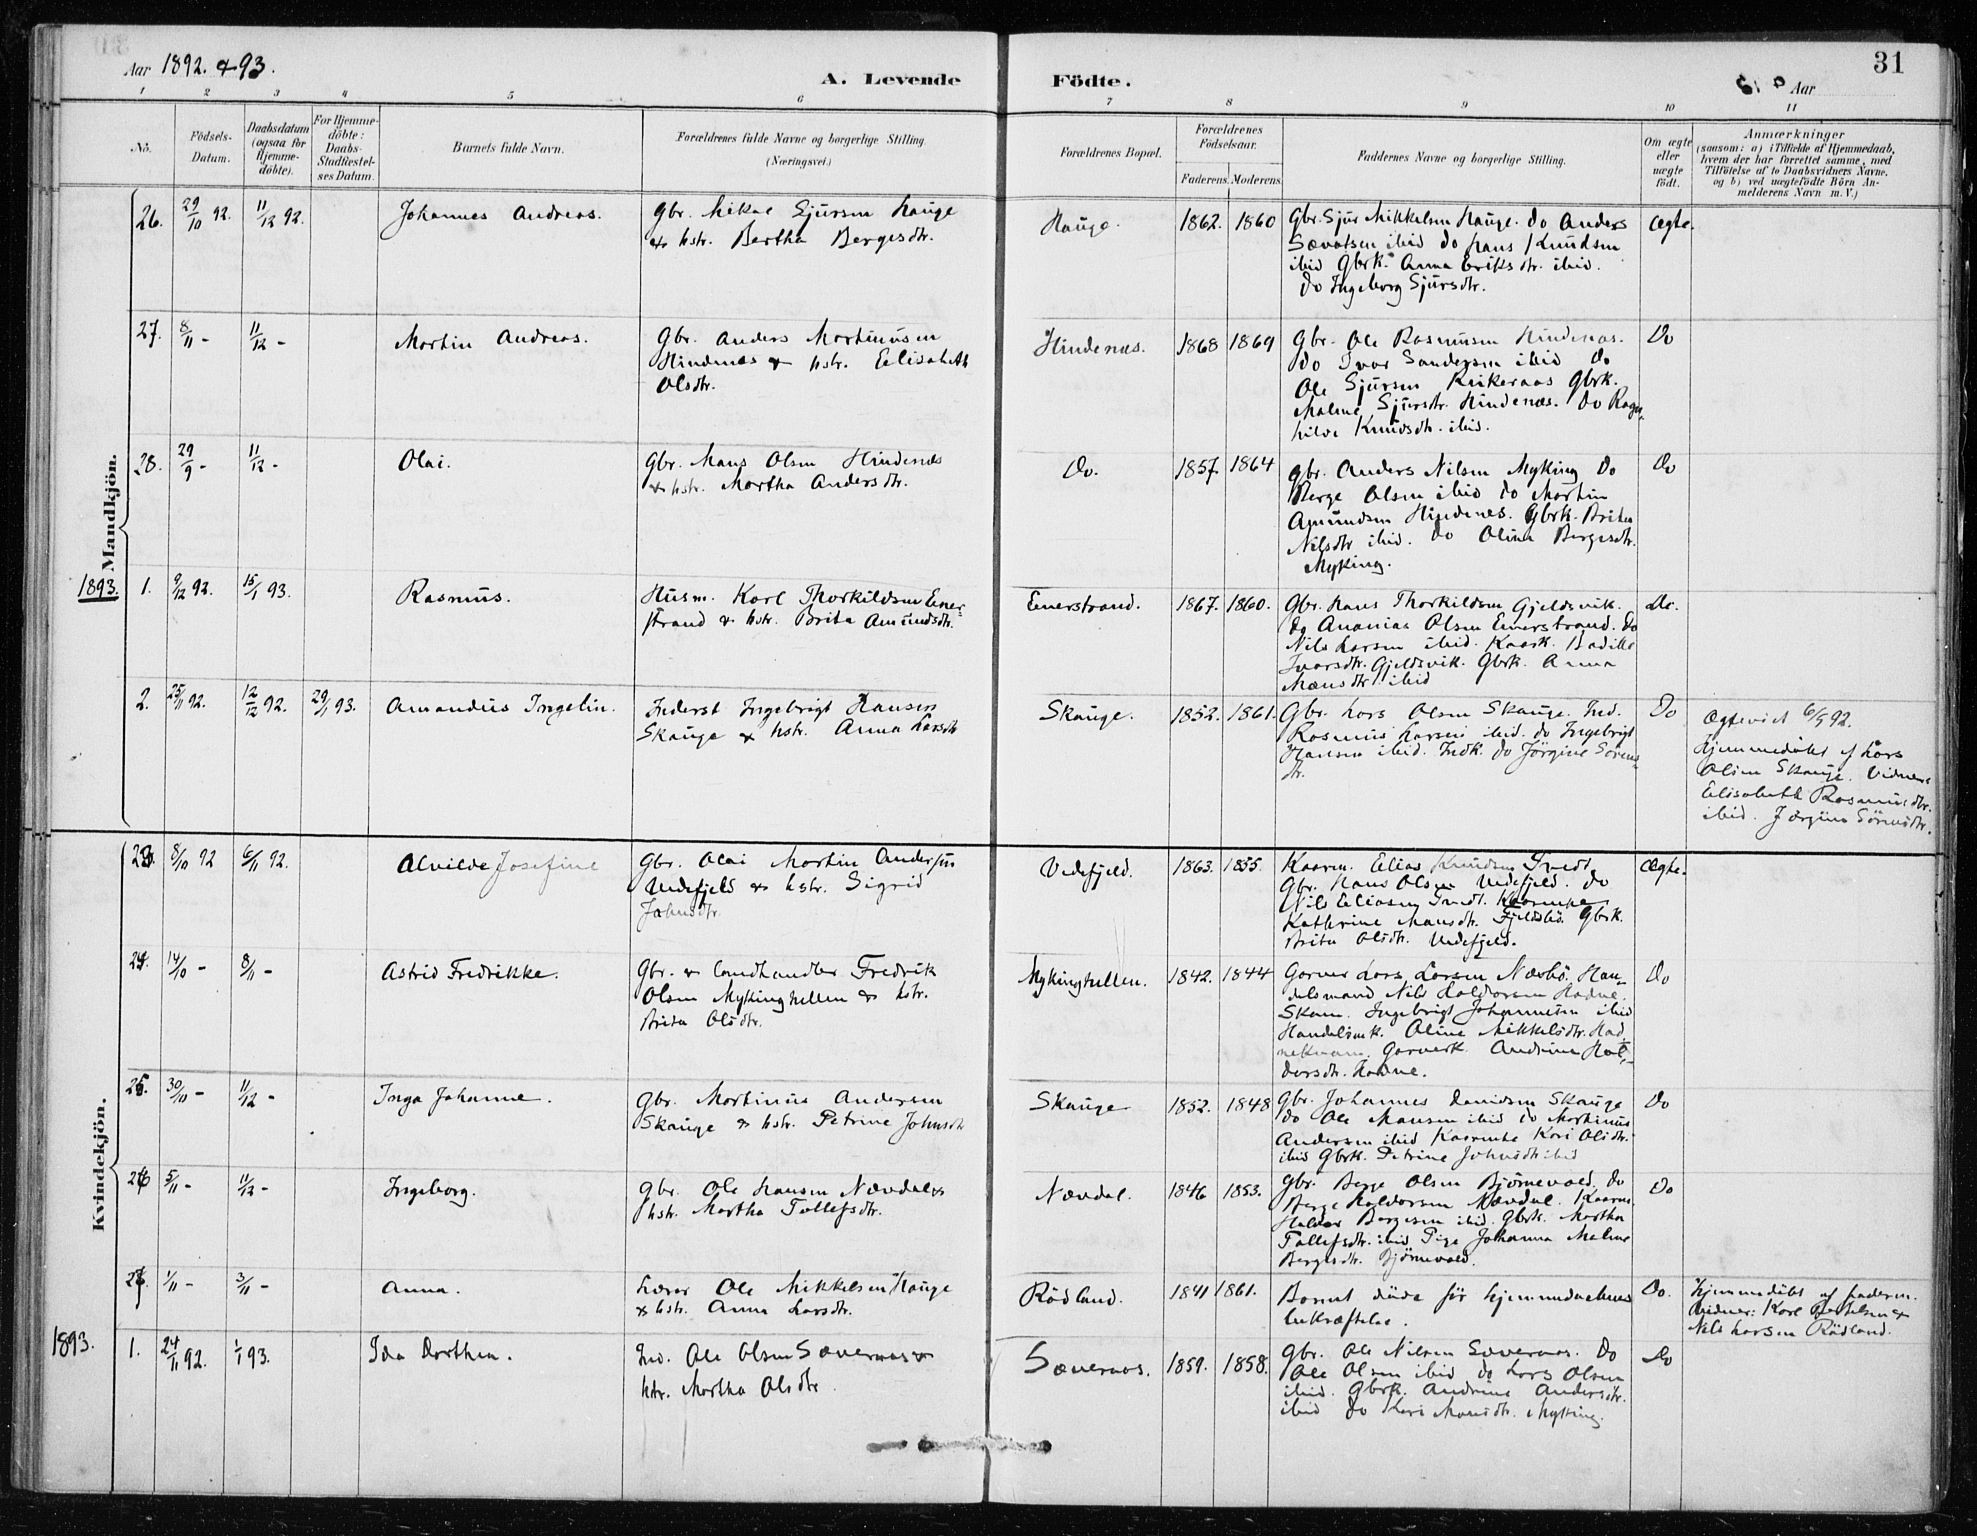 Aar 1892. & 93.
A. Levende
Födte.
Aar
31
1 2 3 4 5 6 7 8 9 10 11
No.
Födsels-
Datum.
Daabsdatum
(ogsaa for
Hjemme-
döbte).
For Hjemme-
döbte:
Daabs-
Stadfæstel-
ses Datum.
Barnets fulde Navn.
Forældrenes fulde Navne og borgerlige Stilling.
(Næringsvei.)
Forældrenes Bopæl.
Forældrenes
Födselsaar.
Faderens. Moderens.
Faddernes Navne og borgerlige Stilling.
Om ægte
eller
uægte
født.
Anmærkninger
(saasom: a) i Tilfælde af Hjemmedaab,
hvem der har forrettet samme, med
Tilföielse af to Daabsvidners Navne,
og b) ved uægtefödte Börn An-
melderens Navn m. V.)
Mandkjön.
26. 29/10 92. 11/12 92. Johannes Andreas.
Gbr. Mikal Sjursen Hauge
& hstr. Bertha Bergesdtr.
Hauge. 1862. 1860
Gbr. Sjur Mikkelsen Hauge. do Anders
Sævatsen ibid do Hans Knudsen
ibid Gbrk. Anna Eriksdtr. ibid.
Do Ingeborg Sjursdtr.
ægte.
27. 8/11 - 11/12 - Martin Andreas.
Gbr. Anders Martinusen
Hindenæs & hstr. Elisabeth
Olsdtr.
Hindenæs. 1868 1869
Gbr. Ole Rasmusen Hindenæs.
do Ivar Sandersen ibid do
Ole Sjursen Gbrk.
Malene Sjursdtr. Hindenæs. Do Ragn-
hilde Knudsdtr. ibid.
Do
28. 29/9 - 11/12 - Olai.
Gbr. Mans Olsen Hindenæs
& hstr. Martha Andersdtr.
Do. 1857. 1864
Gbr. Anders Nilsen Myking Do
Berge Olsen ibid do Martin
Amundsen Hindenes. Gbrk. Brita
Nilsdtr ibid. Do Olina Bergesdtr.
Myking.
Do
1893. 1. 9/12 92. 15/1 93. Rasmus.
Husm. Karl Thorkildsen Emer-
strand & hstr. Brita Amundsdtr.
Emerstrand. 1867. 1860.
Gbr. Hans Thorkildsen Gjeldsvik.
do Ananias Olsen Emerstrand. Do
Nils Larsen ibid. Kaark. Bodille
Ivarsdtr. Gjeldsvik. Gbrk. Anna
Mænsdtr ibid
Do.
2. 25/11 92. 12/12 92. 29/1 93. Amandus Ingelin.
Inderst Ingebrigt Hansen
Skauge & hstr. Anna Larsdtr
Skauge. 1852. 1861.
Gbr. Lars Olsen Skauge. Ind.
Rasmus Larsen ibid. do Ingebrigt
Hansen ibid. Indk. do Jörgine Sörens-
dtr.
Do
Ægteviet 6/5 92.
Hjemmedöbt af Lars
Olsen Skauge. Vidner:
Elisabeth Rasmusdtr.
ibid. Jörgine Sörensdtr.
Kvindekjön.
23. 8/10 92 6/11 92. Alvilde Josefine
Gbr. Olai Martin Andersen
Vedefjeld & hstr. Sigrid
Johnsdtr.
Vedefjeld. 1863. 1855.
Kaarm. Elias Knudsen
Gbr. Hans Olsen Vedefjeld. do
Nils Eliasen Kaarenke
Kathrine Mansdtr. Fjeldsbö. Gbrk.
Brita Olsdtr. Vedefjeld.
Ægte.
24. 14/10 - 8/11 - Astrid Fredrikke.
Gbr. & Landhandler Fredrik
Olsen Mykingtullen & hstr.
Brita Olsdtr.
Mykingtullen. 1842. 1844
Garver Lars Larsen Næsbö. Han-
delsmand Nils Haldorsen Hadne.
Skom. Ingebrigt Johannesen ibid
Handelsmk. Oline Mikkelsdtr. Had-
Garverk. Andrine Hal-
dorsdtr. Hadne.
Do
25. 30/10 - 11/12 - Inga Johanne.
Gbr. Martinus Andersen
Skauge & hstr. Petrine Johnsdtr
Skauge 1852. 1848
Gbr. Johannes Davidsen Skauge
do Ole Mansen ibid do Martinus
Andersen ibid Kaarenke Kari Olsdtr.
ibid Gbrk. Petrine Johnsdtr ibid
Do
26 5/11 - 11/12 - Ingeborg.
Gbr. Ole Hansen Nævdal &
hstr. Martha Tollefsdtr.
Nævdal. 1846 1853.
Gbr. Berge Olsen Bjørnevold. Do
Berge Haldorsen Nævdal. Kaarm.
Haldor Bergesen ibid. Gbrk. Martha
Tollefsdtr. ibid Pige Johanna Malene
Bergesdtr. Bjørnevold.
Do
27. 1/11 - 3/11 - Anna.
Lærer Ole Mikkelsen Hauge
& hstr. Anna Larsdtr.
Rödland. 1841 1861.
Barnet döde för hjemmedaabens
bekræftelse.
Do.
Hjemmedöbt af faderen.
Vidner: Karl &
Nils Larsen Rödland.
1893. 1. 24/11 92. 1/1 93. Ida Dorthea.
Ind. Ole Olsen Sævernæs &
hstr. Martha Olsdtr.
Sævernæs. 1859. 1858.
Gbr. Ole Nilsen Sævernæs. Do
Ole Olsen ibid do Lars Olsen
ibid. Gbrk. Andrine Andersdtr.
ibid do Kari Mansdtr. Myking.
Do